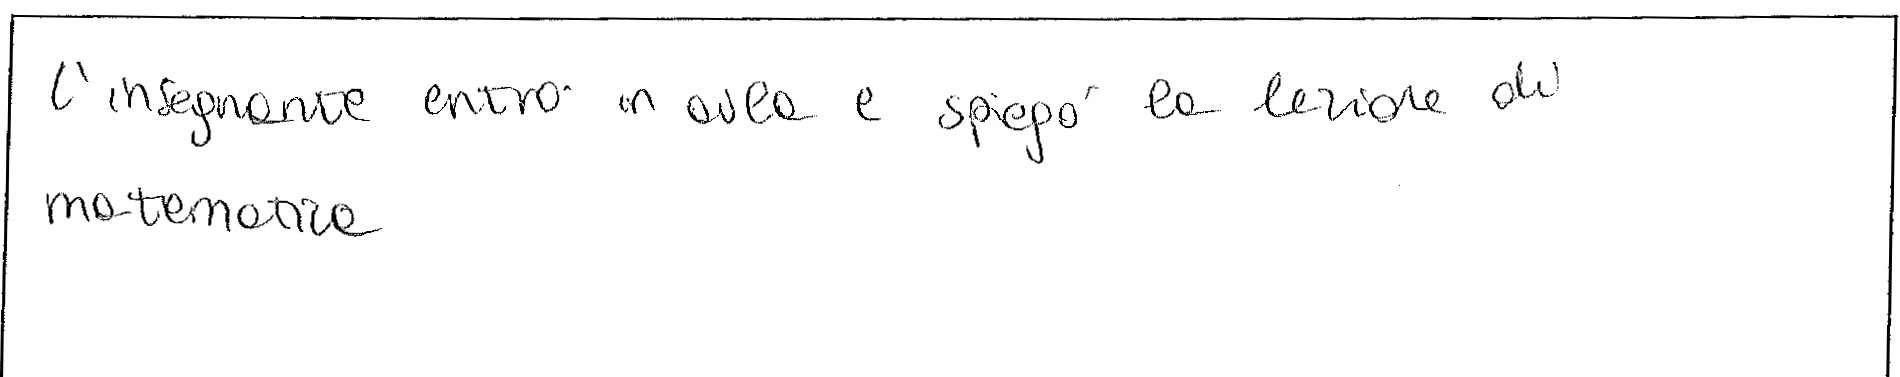 l'insegnante entrò in aula e spiegò la lezione di
matematica